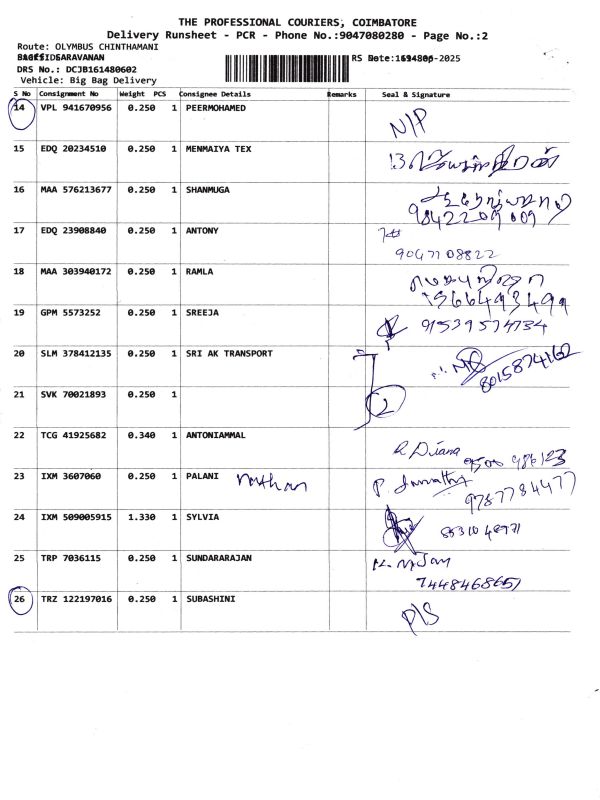 THE PROFESSIONAL COURIERS, COIMBATORE
Delivery Runsheet - PCR - Phone No.:9047080280 - Page No.:2
Route: OLYMBUS CHINTHAMANI
SARAVANAN RS Date: -2025
DRS No.: DCJB161480602
Vehicle: Big Bag Delivery
S No Consignment No Weight PCS Consignee Details Remarks Seal & Signature
14 VPL 941670956 0.250 1 PEERMOHAMED N/P
15 EDQ 20234510 0.250 1 MENMAIYA TEX
16 MAA 576213677 0.250 1 SHANMUGA
9842209009
17 EDQ 23908840 0.250 1 ANTONY
9047108822
18 MAA 303940172 0.250 1 RAMLA
19 GPM 5573252 0.250 1 SREEJA 91539574734
20 SLM 378412135 0.250 1 SRI AK TRANSPORT 8015874162
21 SVK 70021893 0.250 1 2
22 TCG 41925682 0.340 1 ANTONIAMMAL R Diana
23 IXM 3607060 0.250 1 PALANI
9787784477
24 IXM 509005915 1.330 1 SYLVIA
25 TRP 7036115 0.250 1 SUNDARARAJAN
7448468651
26 TRZ 122197016 0.250 1 SUBASHINI P/S